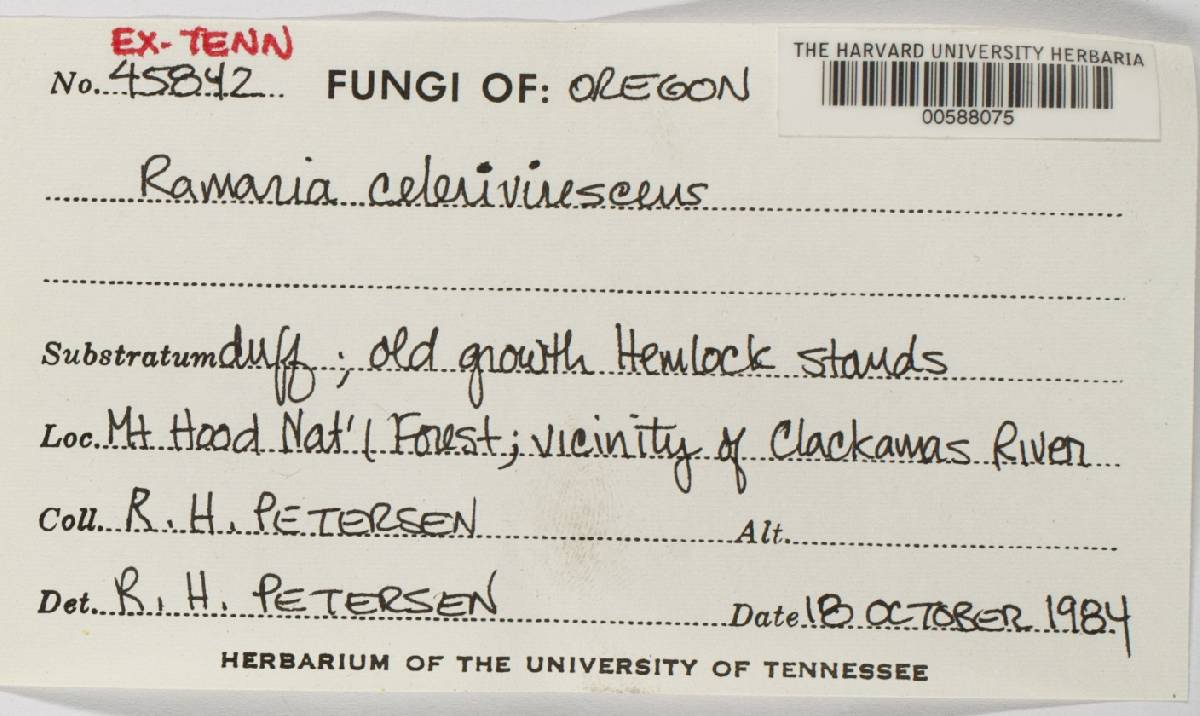 EX-TENN
No. 45842 FUNGI OF: OREGON
THE HARVARD UNIVERSITY HERBARIA
00588075
Ramaria celerivirescens
Substratum duff; old growth Hemlock stands
Loc. Mt Hood Nat'l Forest; vicinity of Clackamas River
Coll. R. H. PETERSEN Alt.
Det. R. H. PETERSEN Date 18 OCTOBER 1984
HERBARIUM OF THE UNIVERSITY OF TENNESSEE